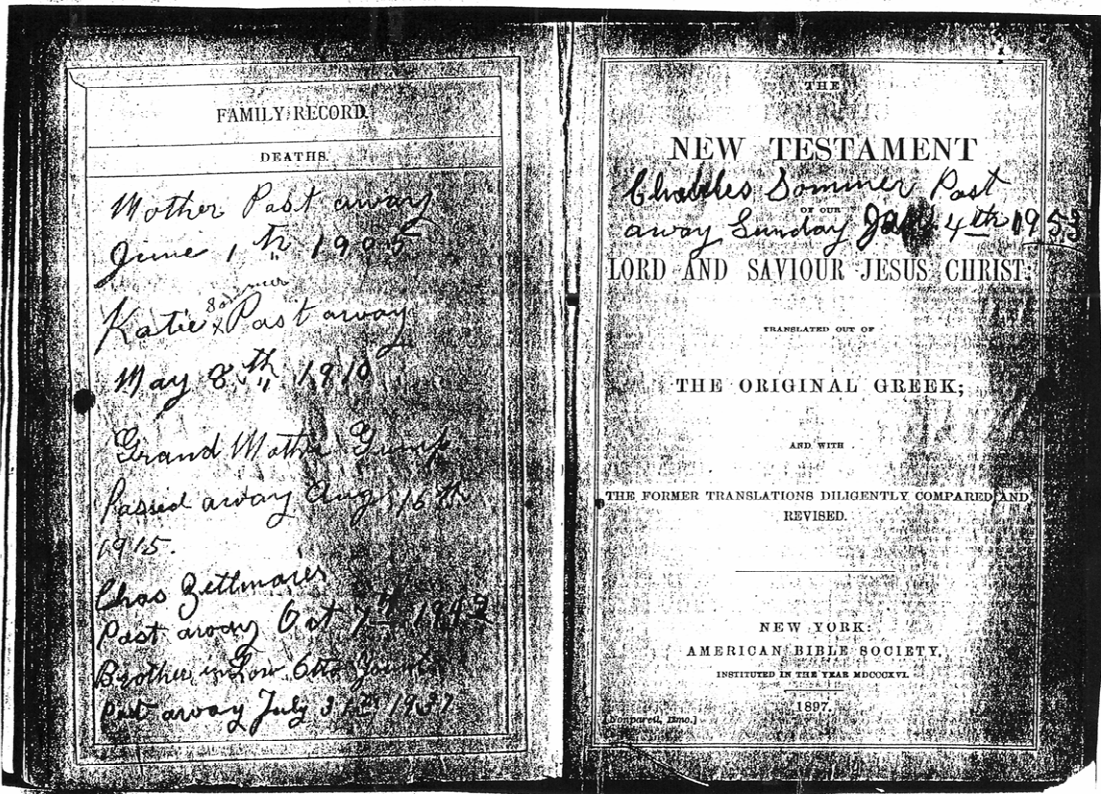 FAMILY RECORD.
DEATHS.
Mother Past away
June 1th 1905
Sommer
Katie x Past away
May 8th 1910
Grand Mother
Passed away Aug 16th
1915.
Chas
Past away Oct 7th 1942
Brother in Low Otto
Past away July 31st 1937
THE
NEW TESTAMENT
Charles Sommer Past
OF OUR
away Sunday Jan 4th 1953
LORD AND SAVIOUR JESUS CHRIST:
TRANSLATED OUT OF
THE ORIGINAL GREEK;
AND WITH
THE FORMER TRANSLATIONS DILIGENTLY COMPARED AND
REVISED.
NEW YORK:
AMERICAN BIBLE SOCIETY,
INSTITUTED IN THE YEAR MDCCCXVI.
1897.
[Nonpareil, 12mo.]